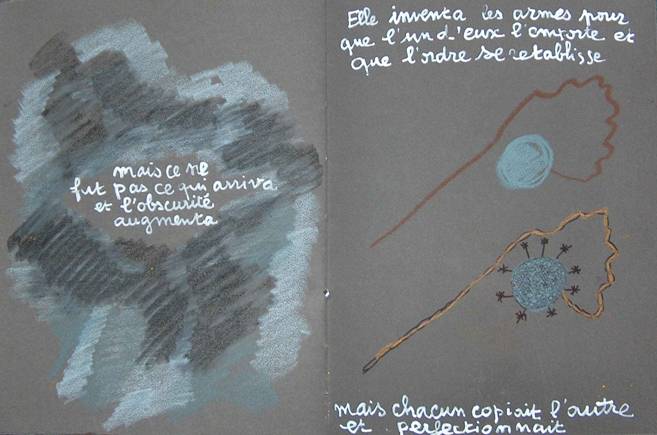 mais ce ne
fut pas ce qui arriva
et l'obscurité
augmenta
Elle inventa les armes pour
que l'un d'eux l'emporte et
que l'ordre se retablisse
mais chacun copiait l'autre
et perfectionnait